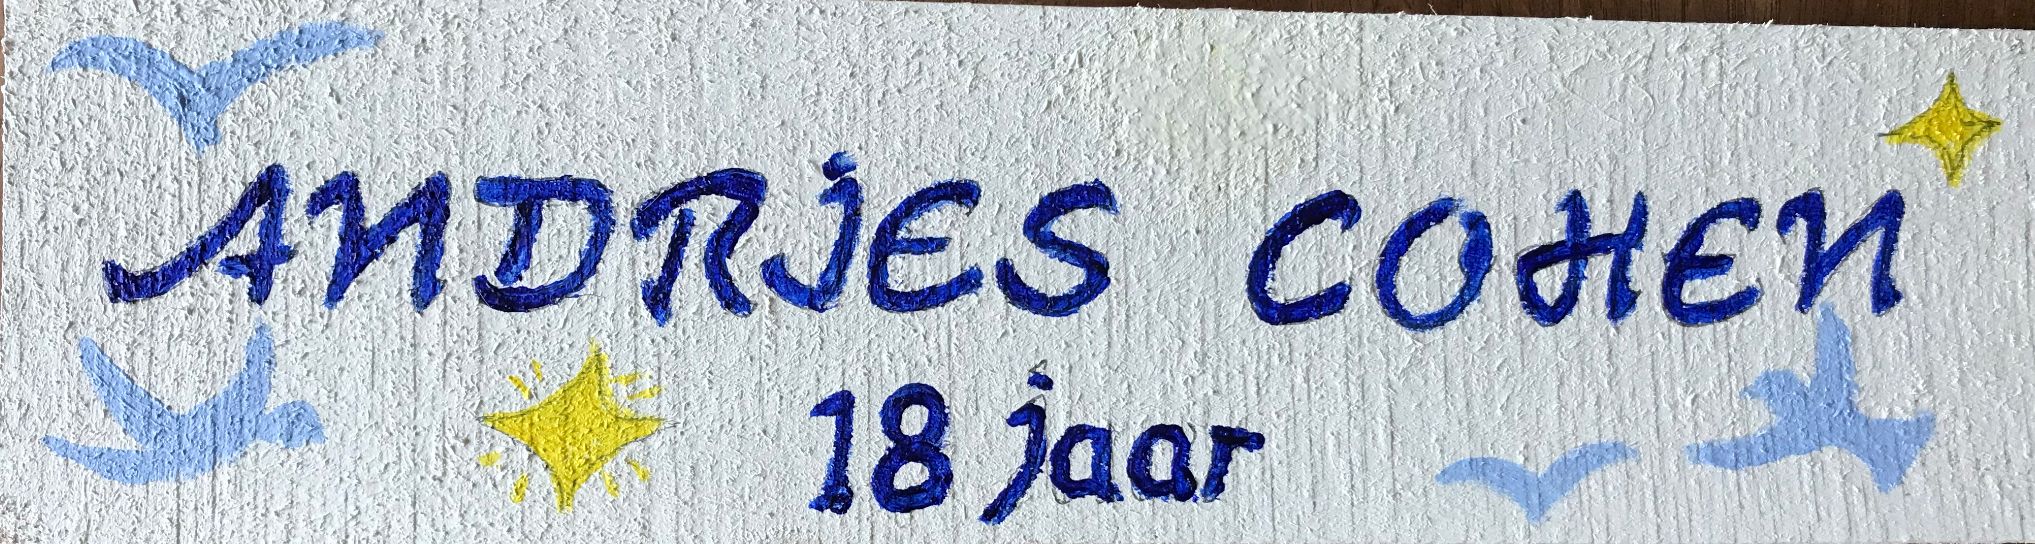 ANDRjES COHEN
18 jaar